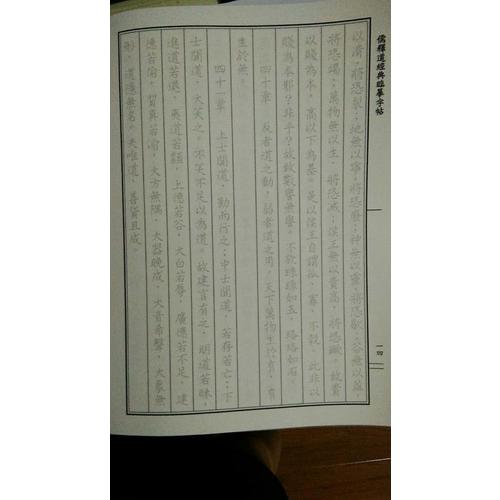 儒釋道經典臨摹字帖
以清，將恐裂；地無以寧，將恐廢；神無以靈，將恐歇；谷無以盈，
將恐竭；萬物無以生，將恐滅；侯王無以貴高，將恐蹶。故貴
以賤為本，高以下為基。是以侯王自謂孤、寡、不穀，此非以
賤為本耶？非乎？故致數譽無譽。不欲琭琭如玉，珞珞如石。
四十章　反者道之動，弱者道之用。天下萬物生於有，有
生於無。
四十一章　上士聞道，勤而行之；中士聞道，若存若亡；下
士聞道，大笑之。不笑不足以為道。故建言有之：明道若昧，
進道若退，夷道若纇，上德若谷，大白若辱，廣德若不足，建
德若偷，質真若渝，大方無隅，大器晚成，大音希聲，大象無
形，道隱無名。夫唯道，善貸且成。
一四